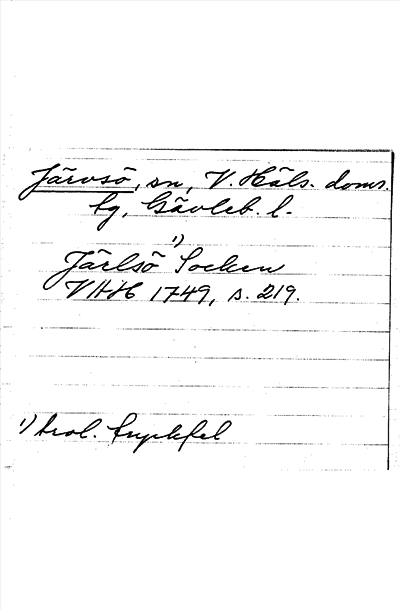 Järvsö, sn, V. Häls. doms.
tg, Gävleb. l.
Järlsö 1) Socken
VHH 1749, s. 219.
1) trol. tryckfel